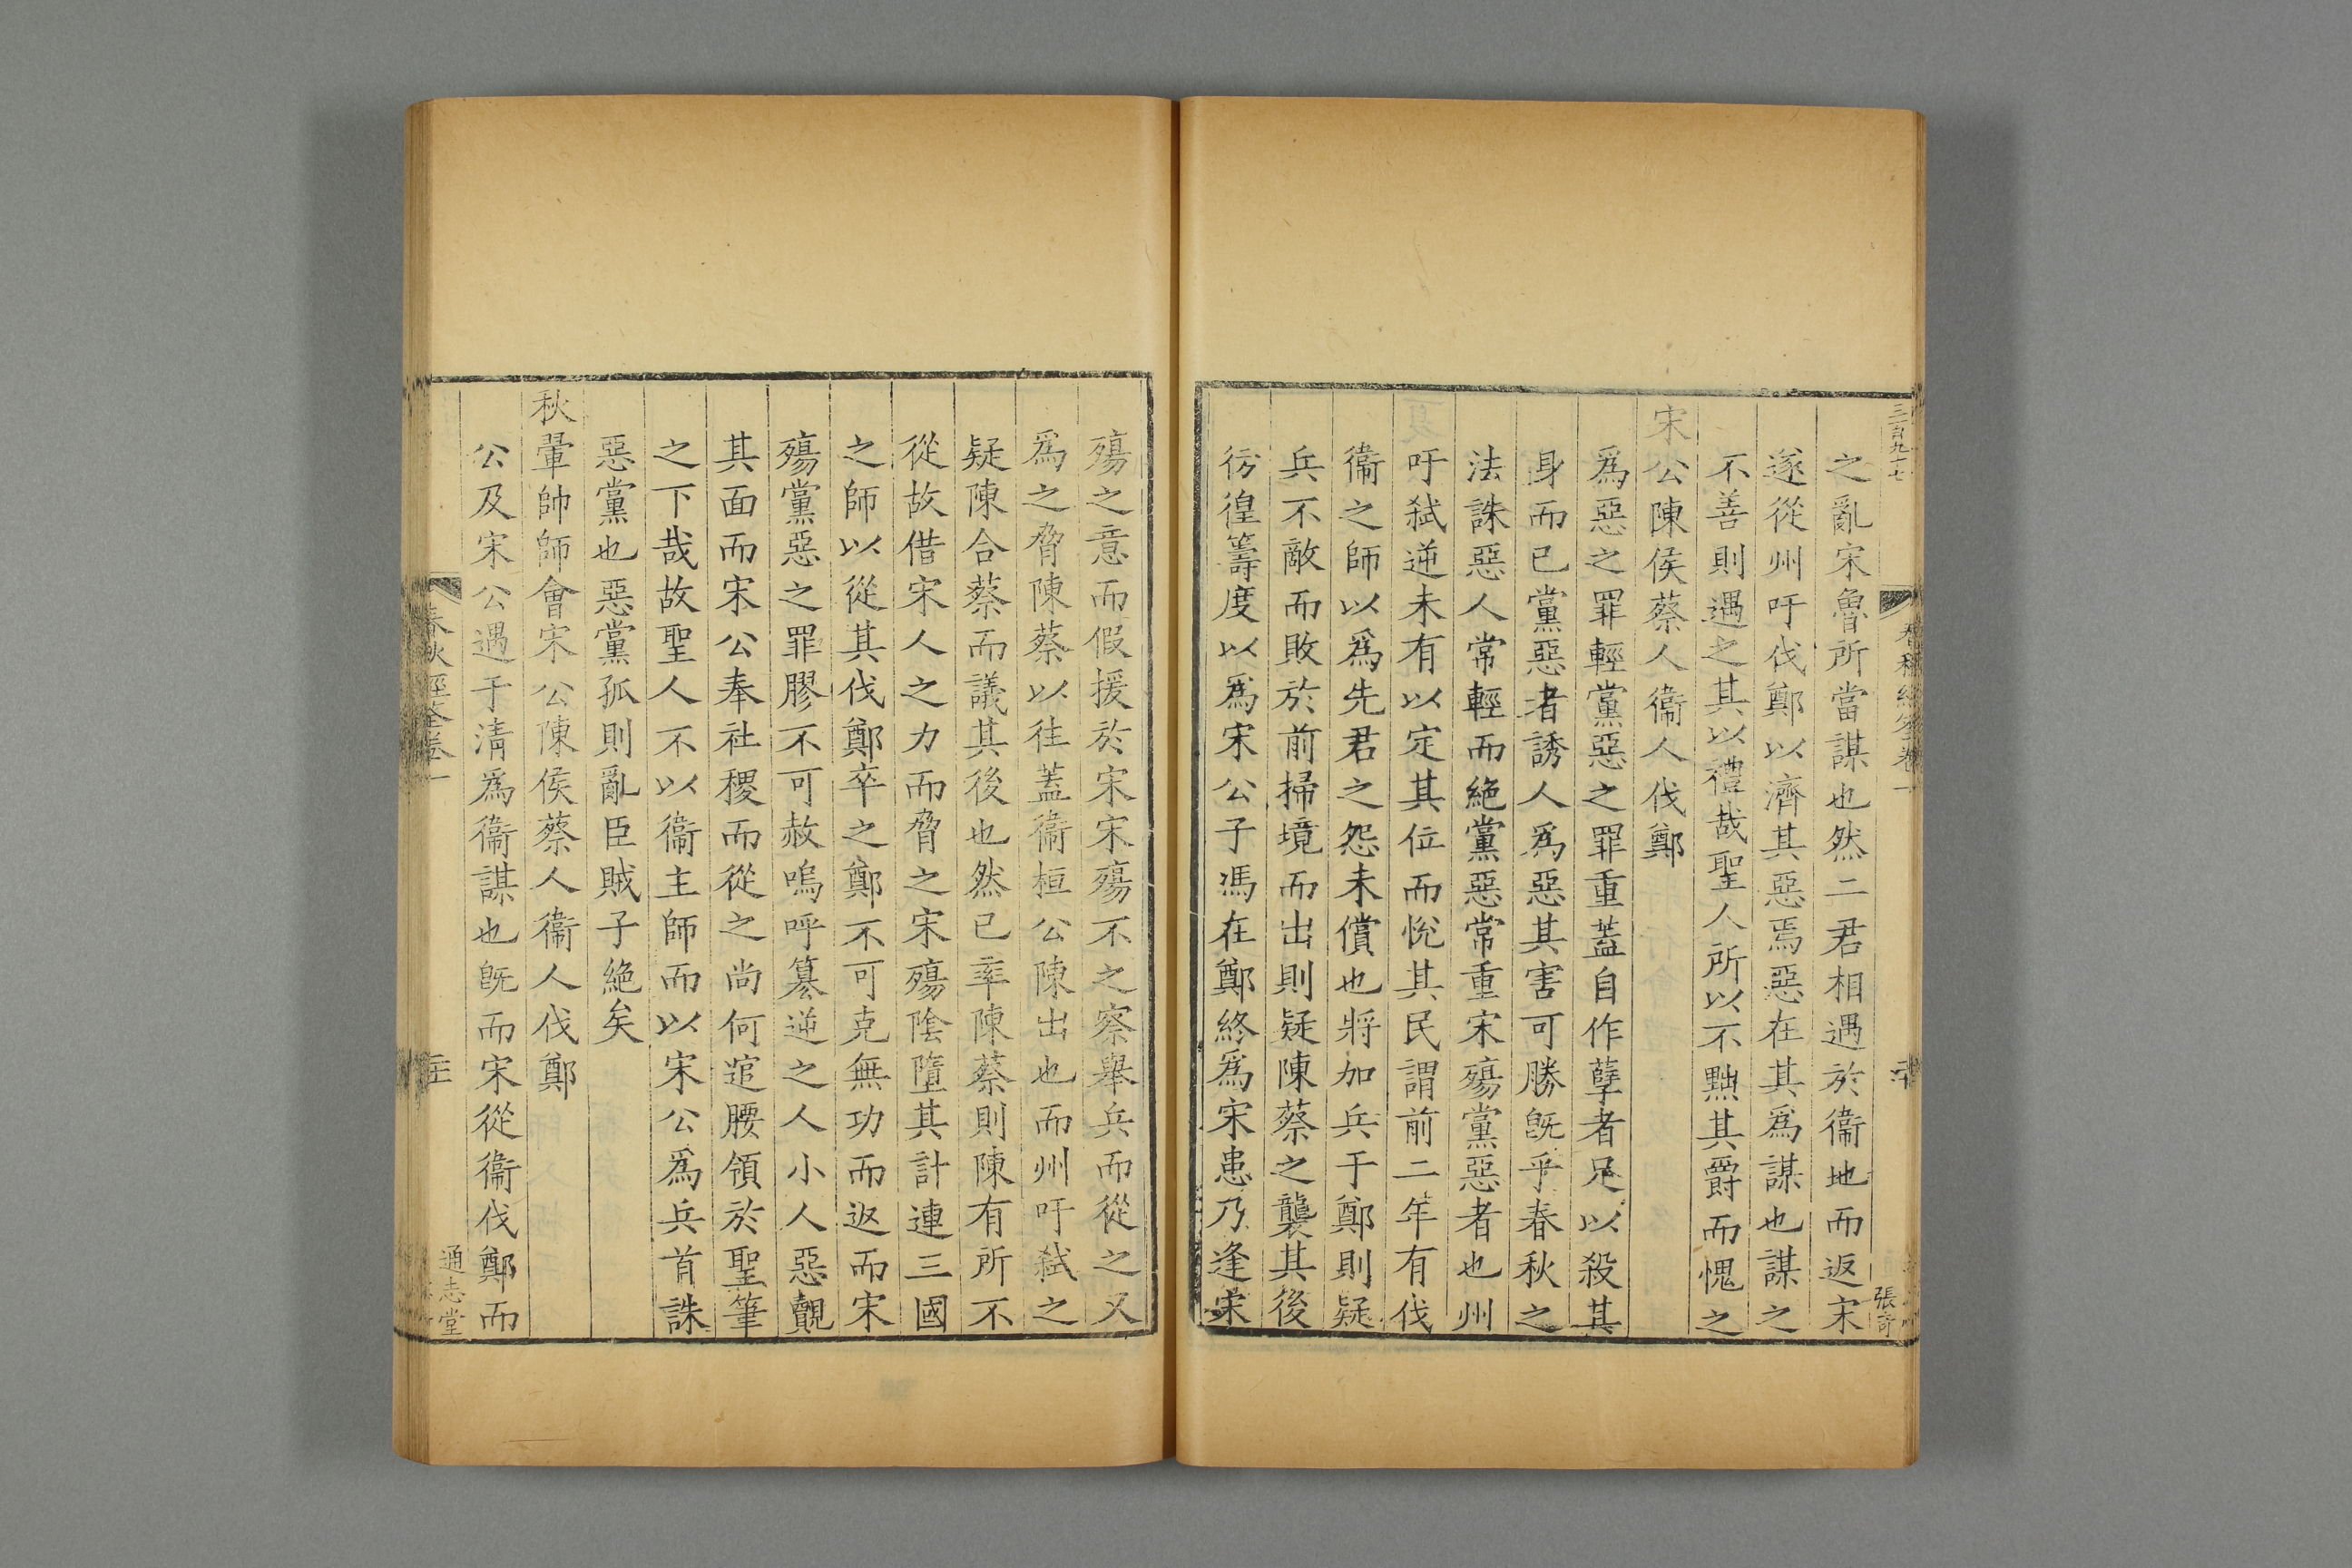 三百九十七
春秋經筌卷一
二十
張奇
之亂宋魯所當謀也然二君相遇於衞地而返宋
遂從州吁伐鄭以濟其惡焉惡在其爲謀也謀之
不善則遇之其以禮哉聖人所以不黜其爵而愧之
宋公陳侯蔡人衞人伐鄭
爲惡之罪輕黨惡之罪重蓋自作孽者足以殺其
身而已黨惡者誘人爲惡其害可勝旣乎春秋之
法誅惡人常輕而絶黨惡常重宋殤黨惡者也州
吁弑逆未有以定其位而恱其民謂前二年有伐
衞之師以爲先君之怨未償也將加兵于鄭則疑
兵不敵而敗於前掃境而出則疑陳蔡之襲其後
徬徨籌度以爲宋公子馮在鄭終爲宋患乃逢宋
殤之意而假援於宋宋殤不之察舉兵而從之又
爲之脅陳蔡以徃蓋衞桓公陳出也而州吁弑之
疑陳合蔡而議其後也然已率陳蔡則陳有所不
從故借宋人之力而脅之宋殤陰墮其計連三國
之師以從其伐鄭卒之鄭不可克無功而返而宋
殤黨惡之罪膠不可赦嗚呼篡逆之人小人惡覿
其面而宋公奉社稷而從之尚何逭腰領於聖筆
之下哉故聖人不以衞主師而以宋公爲兵首誅
惡黨也惡黨孤則亂臣賊子絶矣
秋翬帥師會宋公陳侯蔡人衞人伐鄭
公及宋公遇于清爲衞謀也旣而宋從衞伐鄭而
春秋經筌卷一
通志堂